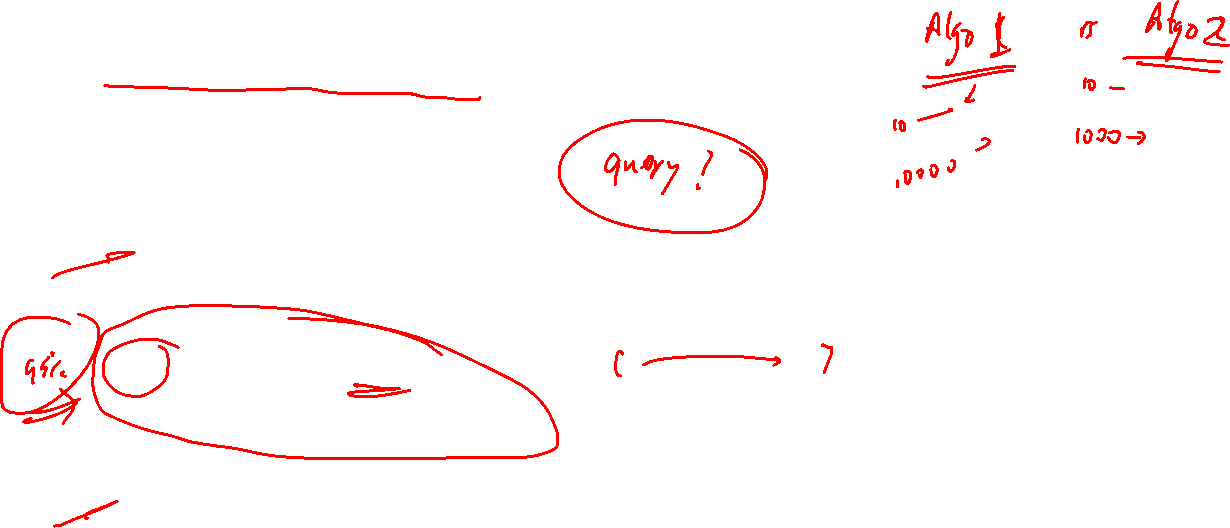 Algo 1 vs Algo 2
10
10
1000
.0000
query?
95%